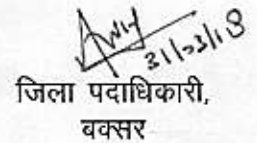 31/03/18
जिला पदाधिकारी,
बक्सर